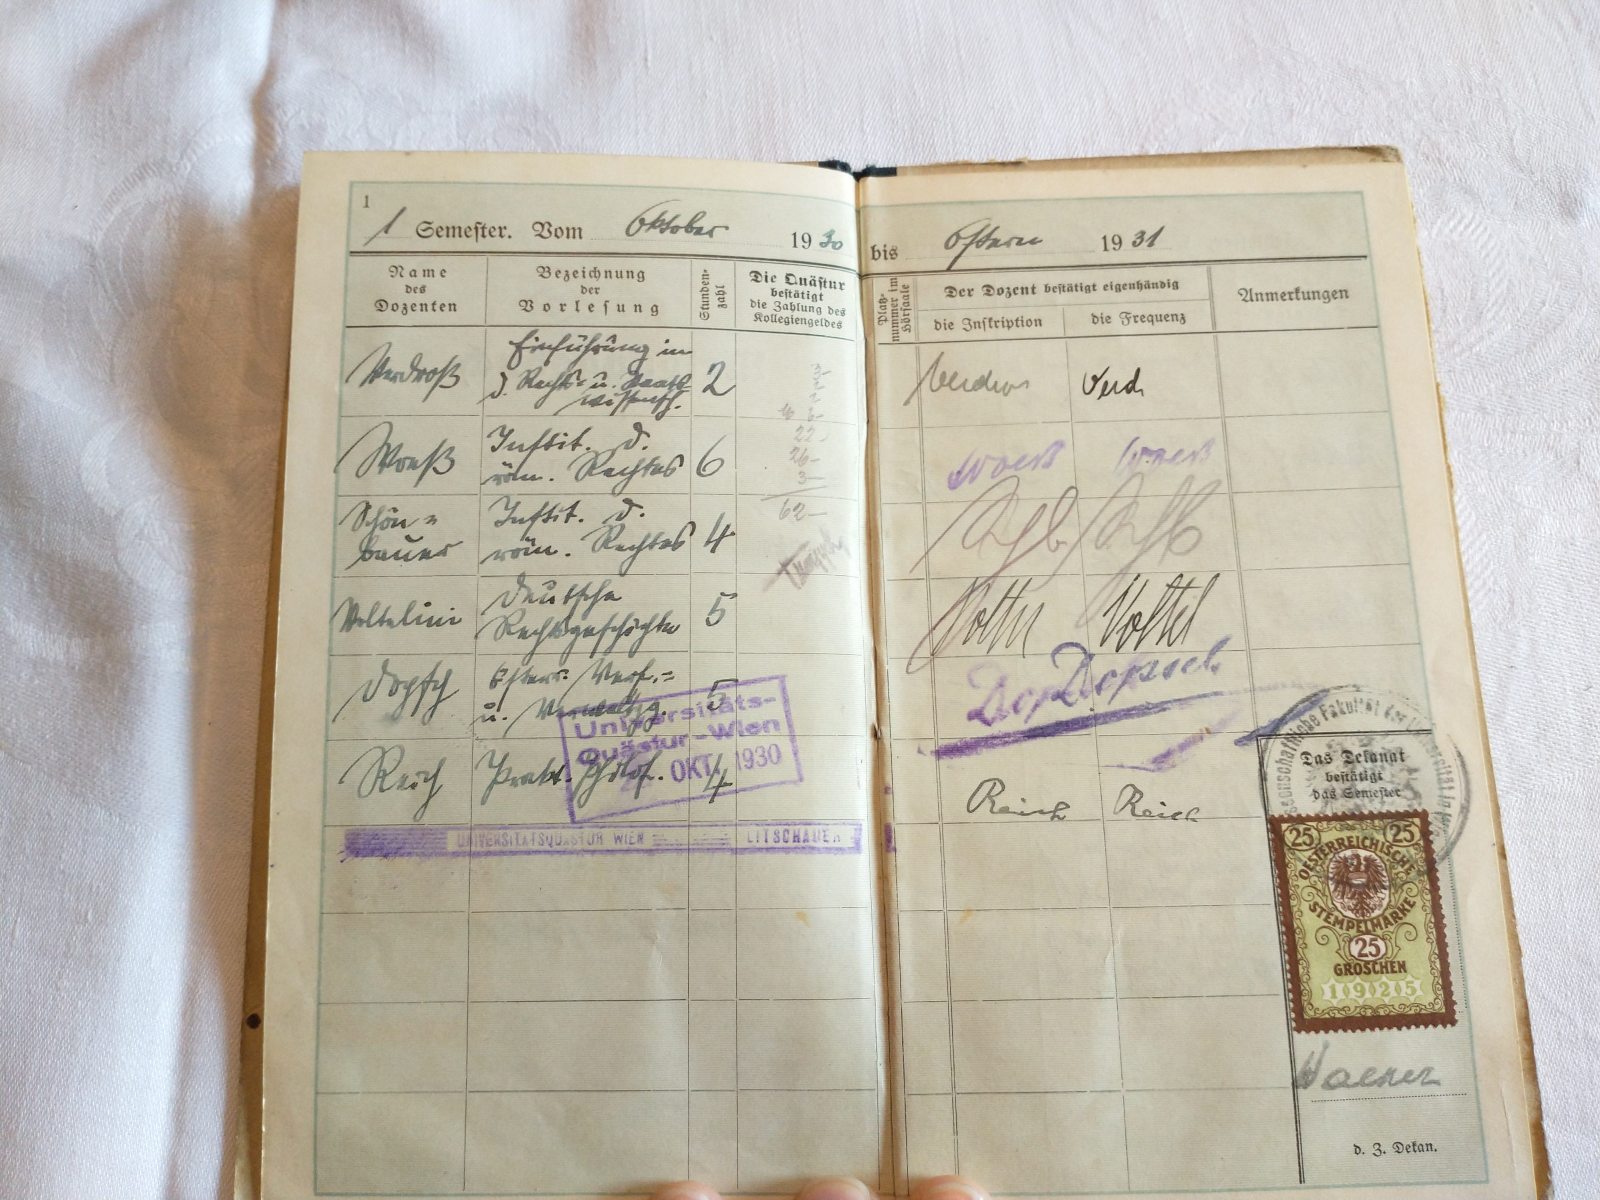 1
1 Semester. Vom Oktober 1930 bis Ostern 1931
Name des Dozenten
Bezeichnung der Vorlesung
Stundenzahl
Die Quästur bestätigt die Zahlung des Kollegiengeldes
Platznummer im Hörsaale
Der Dozent bestätigt eigenhändig
die Inskription
die Frequenz
Anmerkungen
Verdroß
Einführung in
d. Rechts- u. Staats-
wissensch.
2
Woeß
Instit. d.
röm. Rechtes
6
Woeß Woeß
22
26-
3-
62-
Schön=
bauer
Instit. d.
röm. Rechtes
4
Voltelini
Deutsche
Rechtsgeschichte
5
Dopsch
Österr. Verf.=
u.
5
Reich
Prakt. Philos.
4
Reich Reich
Universitäts-
Quästur-Wien
OKT. 1930
UNIVERSITÄTSQUÄSTUR WIEN LITSCHAUER
Das Dekanat
bestätigt
das Semester
25 25
OESTERREICHISCHE
STEMPELMARKE
25
GROSCHEN
1925
d. Z. Dekan.